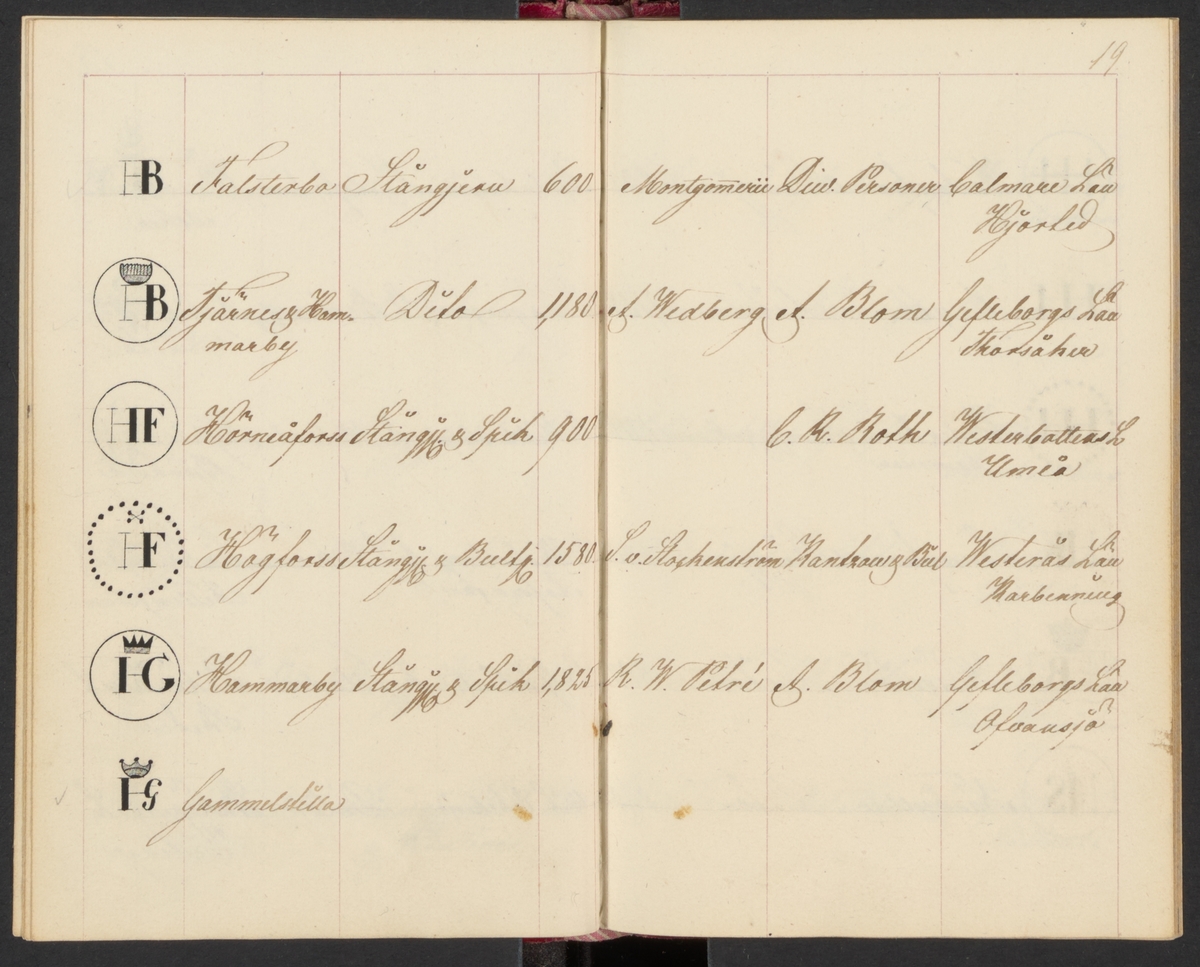 19
HB Falsterbo Stångjern 600 Montgomerii Div. Personer Calmare Län
Hjorted
HB Tjärnes & Ham- Dito 1,180 A. Wedberg A. Blom Gefleborgs Län
marby Thorsåker
HF Hörneåforss Stångj. & Spik 900 C. R. Roth Westerbottens L
Umeå
HF Högforss Stångj. & Bultj. 1580 S. v. Stockenström Rantzow & Westerås Län
Karbenning
HG Hammarby Stångj. & Spik 1,825 R. W. Petré A. Blom Gefleborgs Län
Ofvansjö
HG Gammelstilla